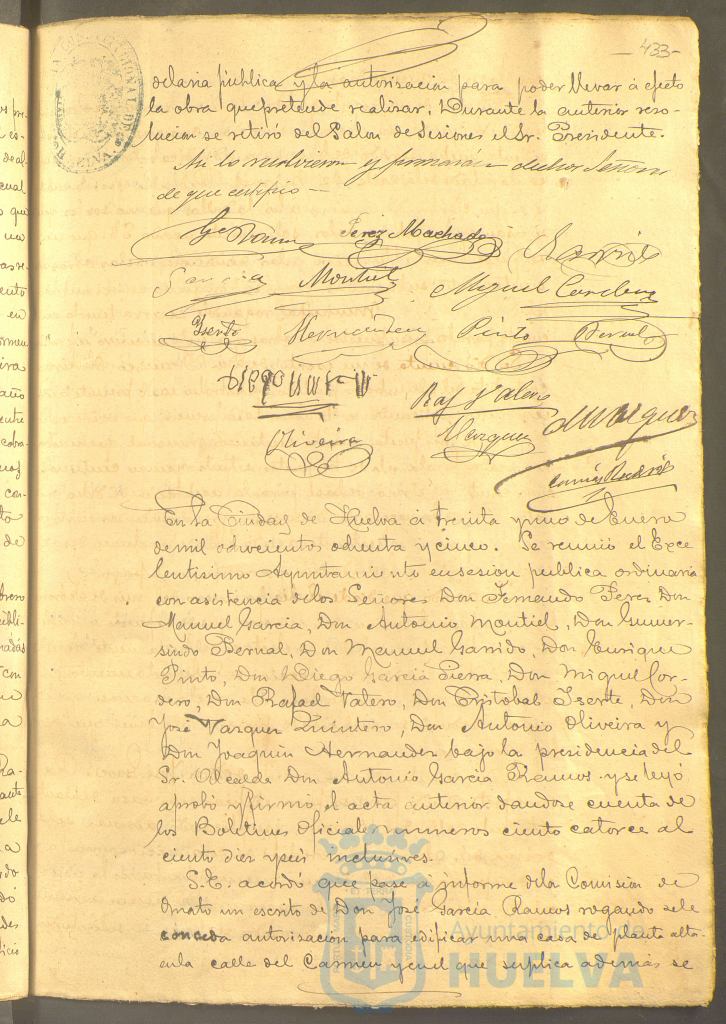 -433-
delaria pública y la autorización para poder llevar á efeto
la obra que pretende realizar. Durante la anterior reso-
lucion se retiró del Salon de Sesiones el Sr. Presidente.
Asi lo resolvieron y firmarán dichos Señores
de que certifico —
Ga Ramos Perez Machado Garrido
Garcia Montiel Miguel Cordero
Iserte Hernandez Pinto Bernal
Raf Valero
Oliveira Vazquez
En la Ciudad de Huelva á treinta y uno de Enero
de mil ochocientos ochenta y cinco. Se reunió el Exce
lentisimo Ayuntamiento en sesion publica ordinaria
con asistencia de los Señores Don Fernando Perez Don
Manuel Garcia, Don Antonio Montiel, Don Gumer-
sindo Bernal, Don Manuel Garrido, Don Enrique
Pinto, Don Diego Garcia Pierra, Don Miguel Cor-
dero, Don Rafael Valero, Don Cristobal Iserte, Don
José Vazquez Quintero, Don Antonio Oliveira y
Don Joaquin Hernandez bajo la presidencia del
Sr. Alcalde Don Antonio Garcia Ramos y se leyó
aprobó y firmó el acta anterior dandose cuenta de
los Boletines Oficiales numeros ciento catorce al
ciento diez y seis inclusives.
S.E. acordó que pase á informe de la Comision de
Ornato un escrito de Don José Garcia Ramos rogando se le
conceda autorizacion para edificar una casa de planta alta
en la calle del Carmen y en el que suplica ademas se
Ayuntamiento de
HUELVA